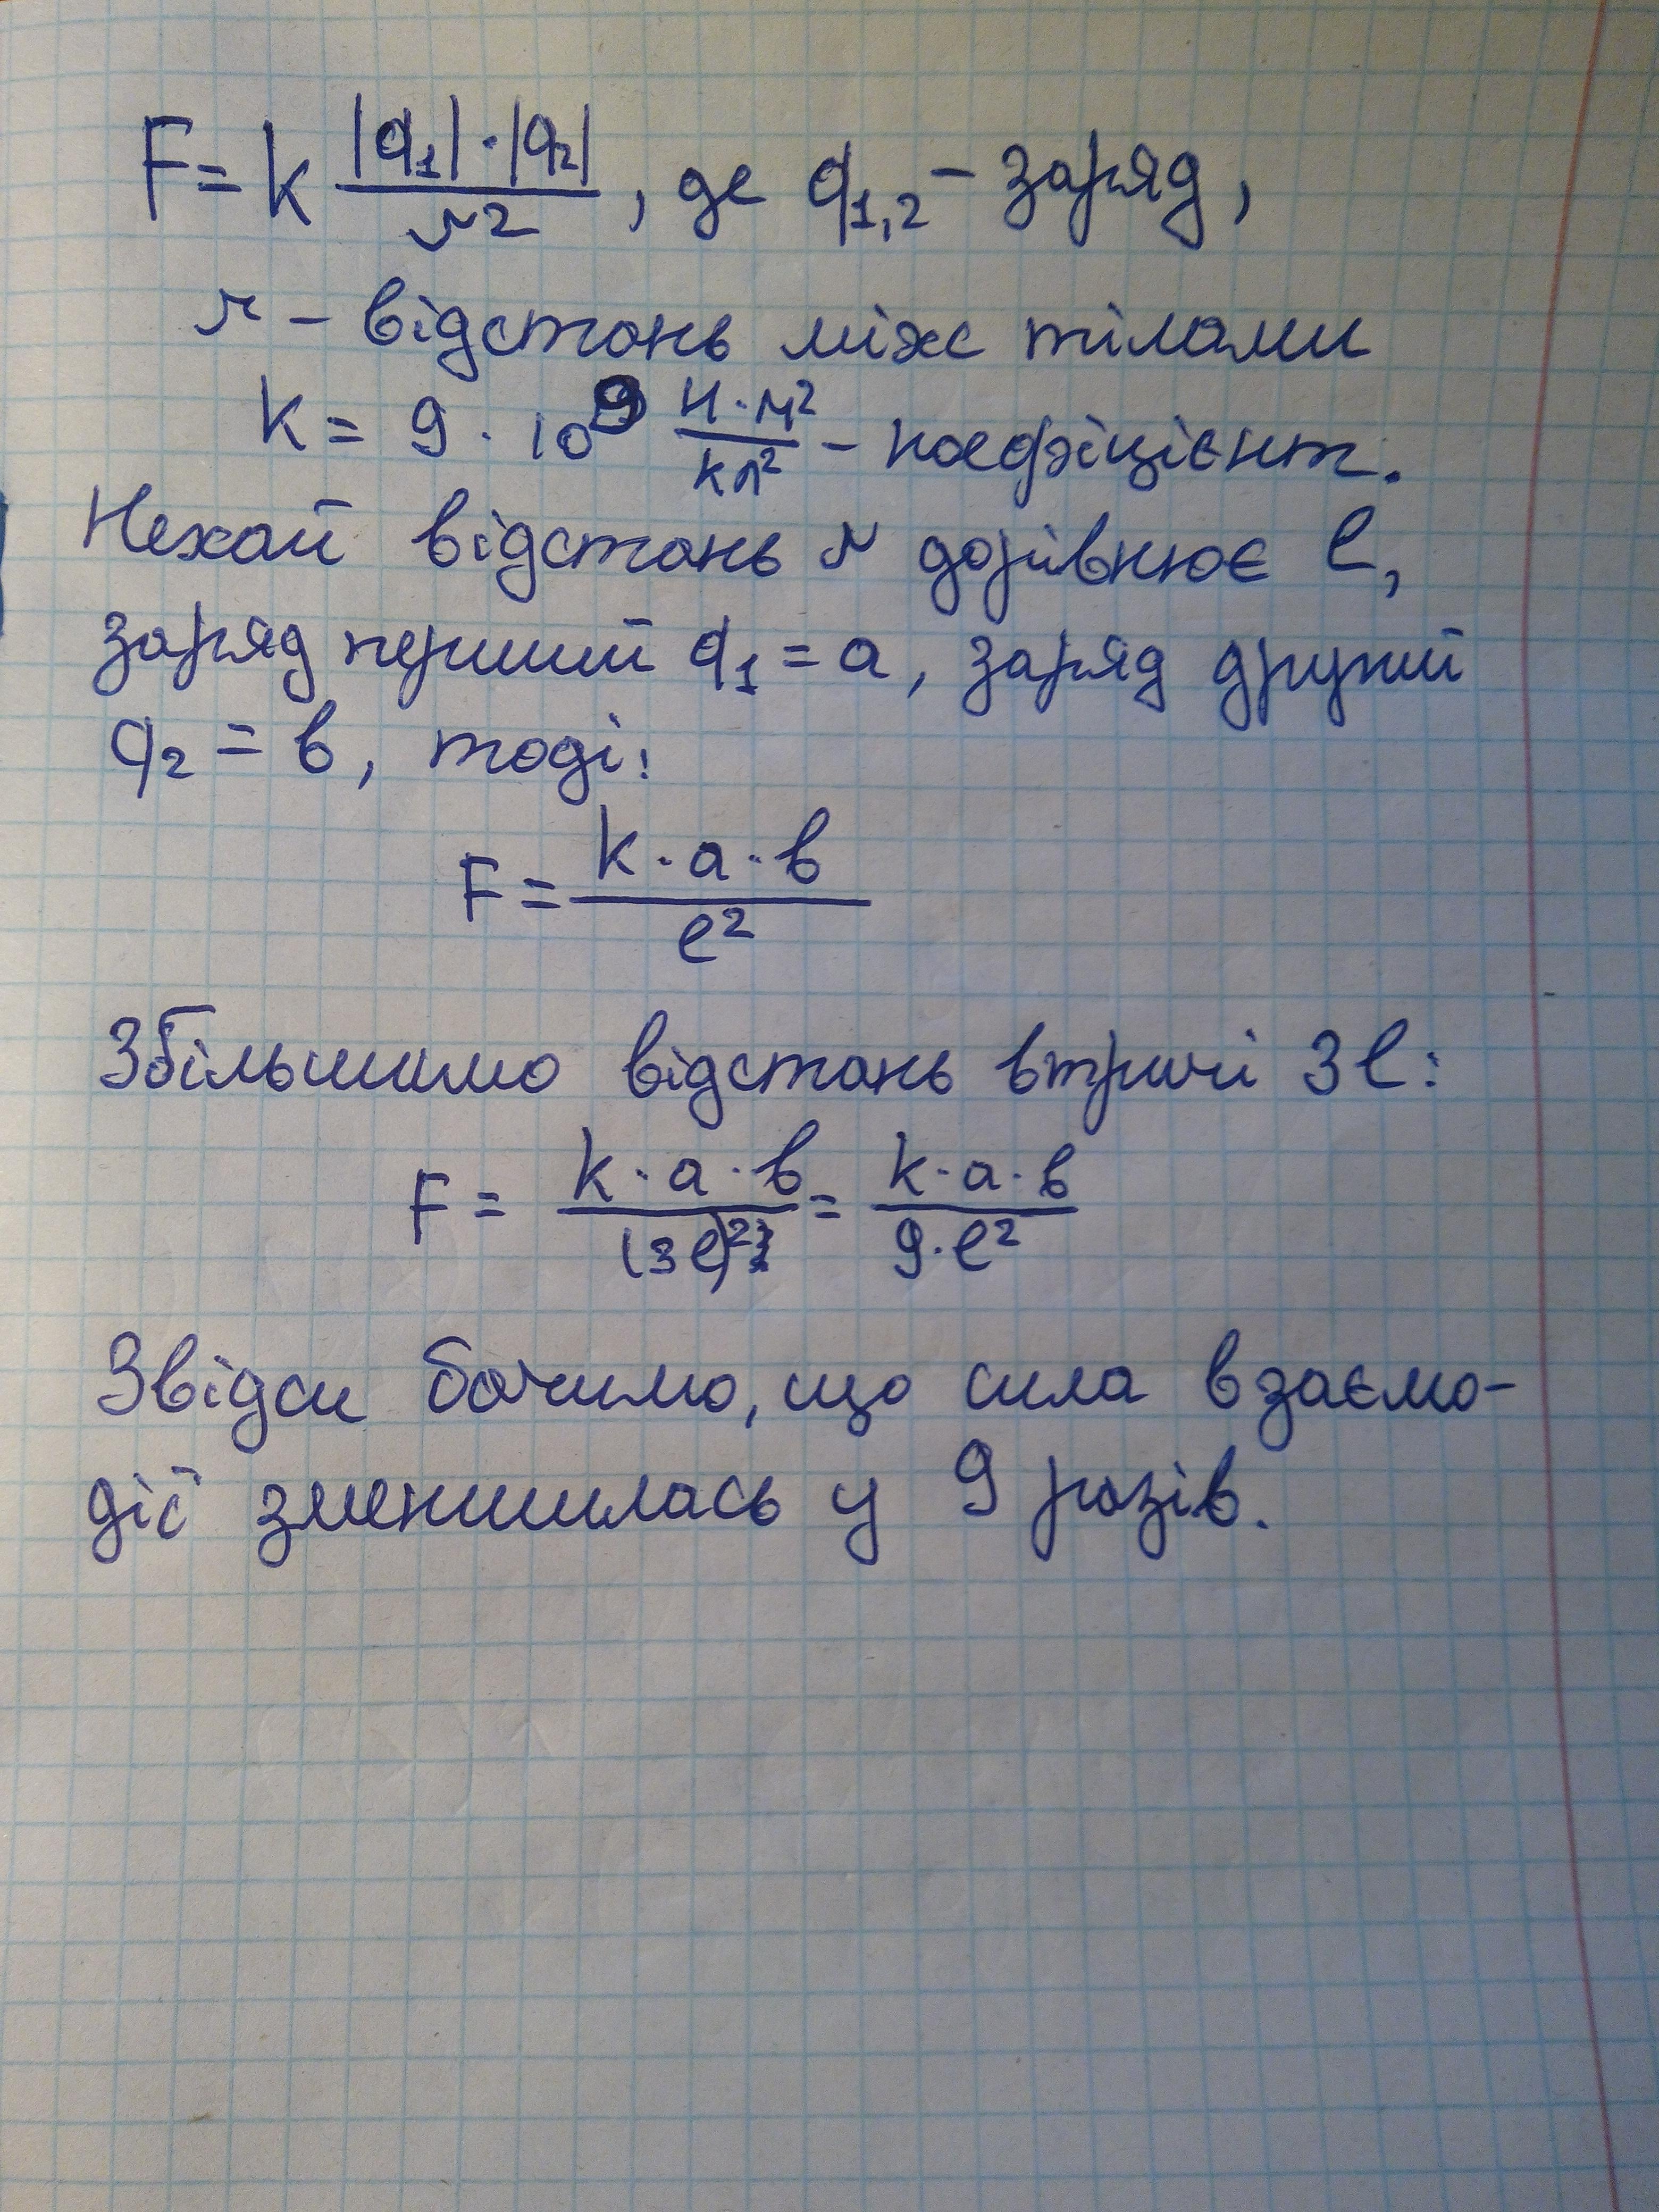 F = k |q₁|·|q₂| / r², де q₁,₂ – заряд,
r – відстань між тілами
k = 9 · 10⁹ Н·м²/кл² – коефіцієнт.
Нехай відстань r дорівнює l,
заряд перший q₁ = а, заряд другий
q₂ = в, тоді:
F = k · а · в / l²
Збільшимо відстань втричі 3l:
F = k · а · в / (3l)² = k · а · в / 9 · l²
Звідси бачимо, що сила взаємо-
дії зменшилась у 9 разів.